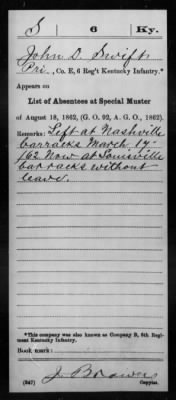 S 6 Ky.
John D. Swift
Pri., Co. E, 6 Reg't Kentucky Infantry.*
Appears on
List of Absentees at Special Muster
of August 18, 1862, (G. O. 92, A. G. O., 1862).
Remarks: Left at Nashville
barracks March 17-
/62 Now at Louisville
barracks without
leave.
*This company was also known as Company B, 6th Regi-
ment Kentucky Infantry.
Book mark:
J. Brown
(347) Copyist.